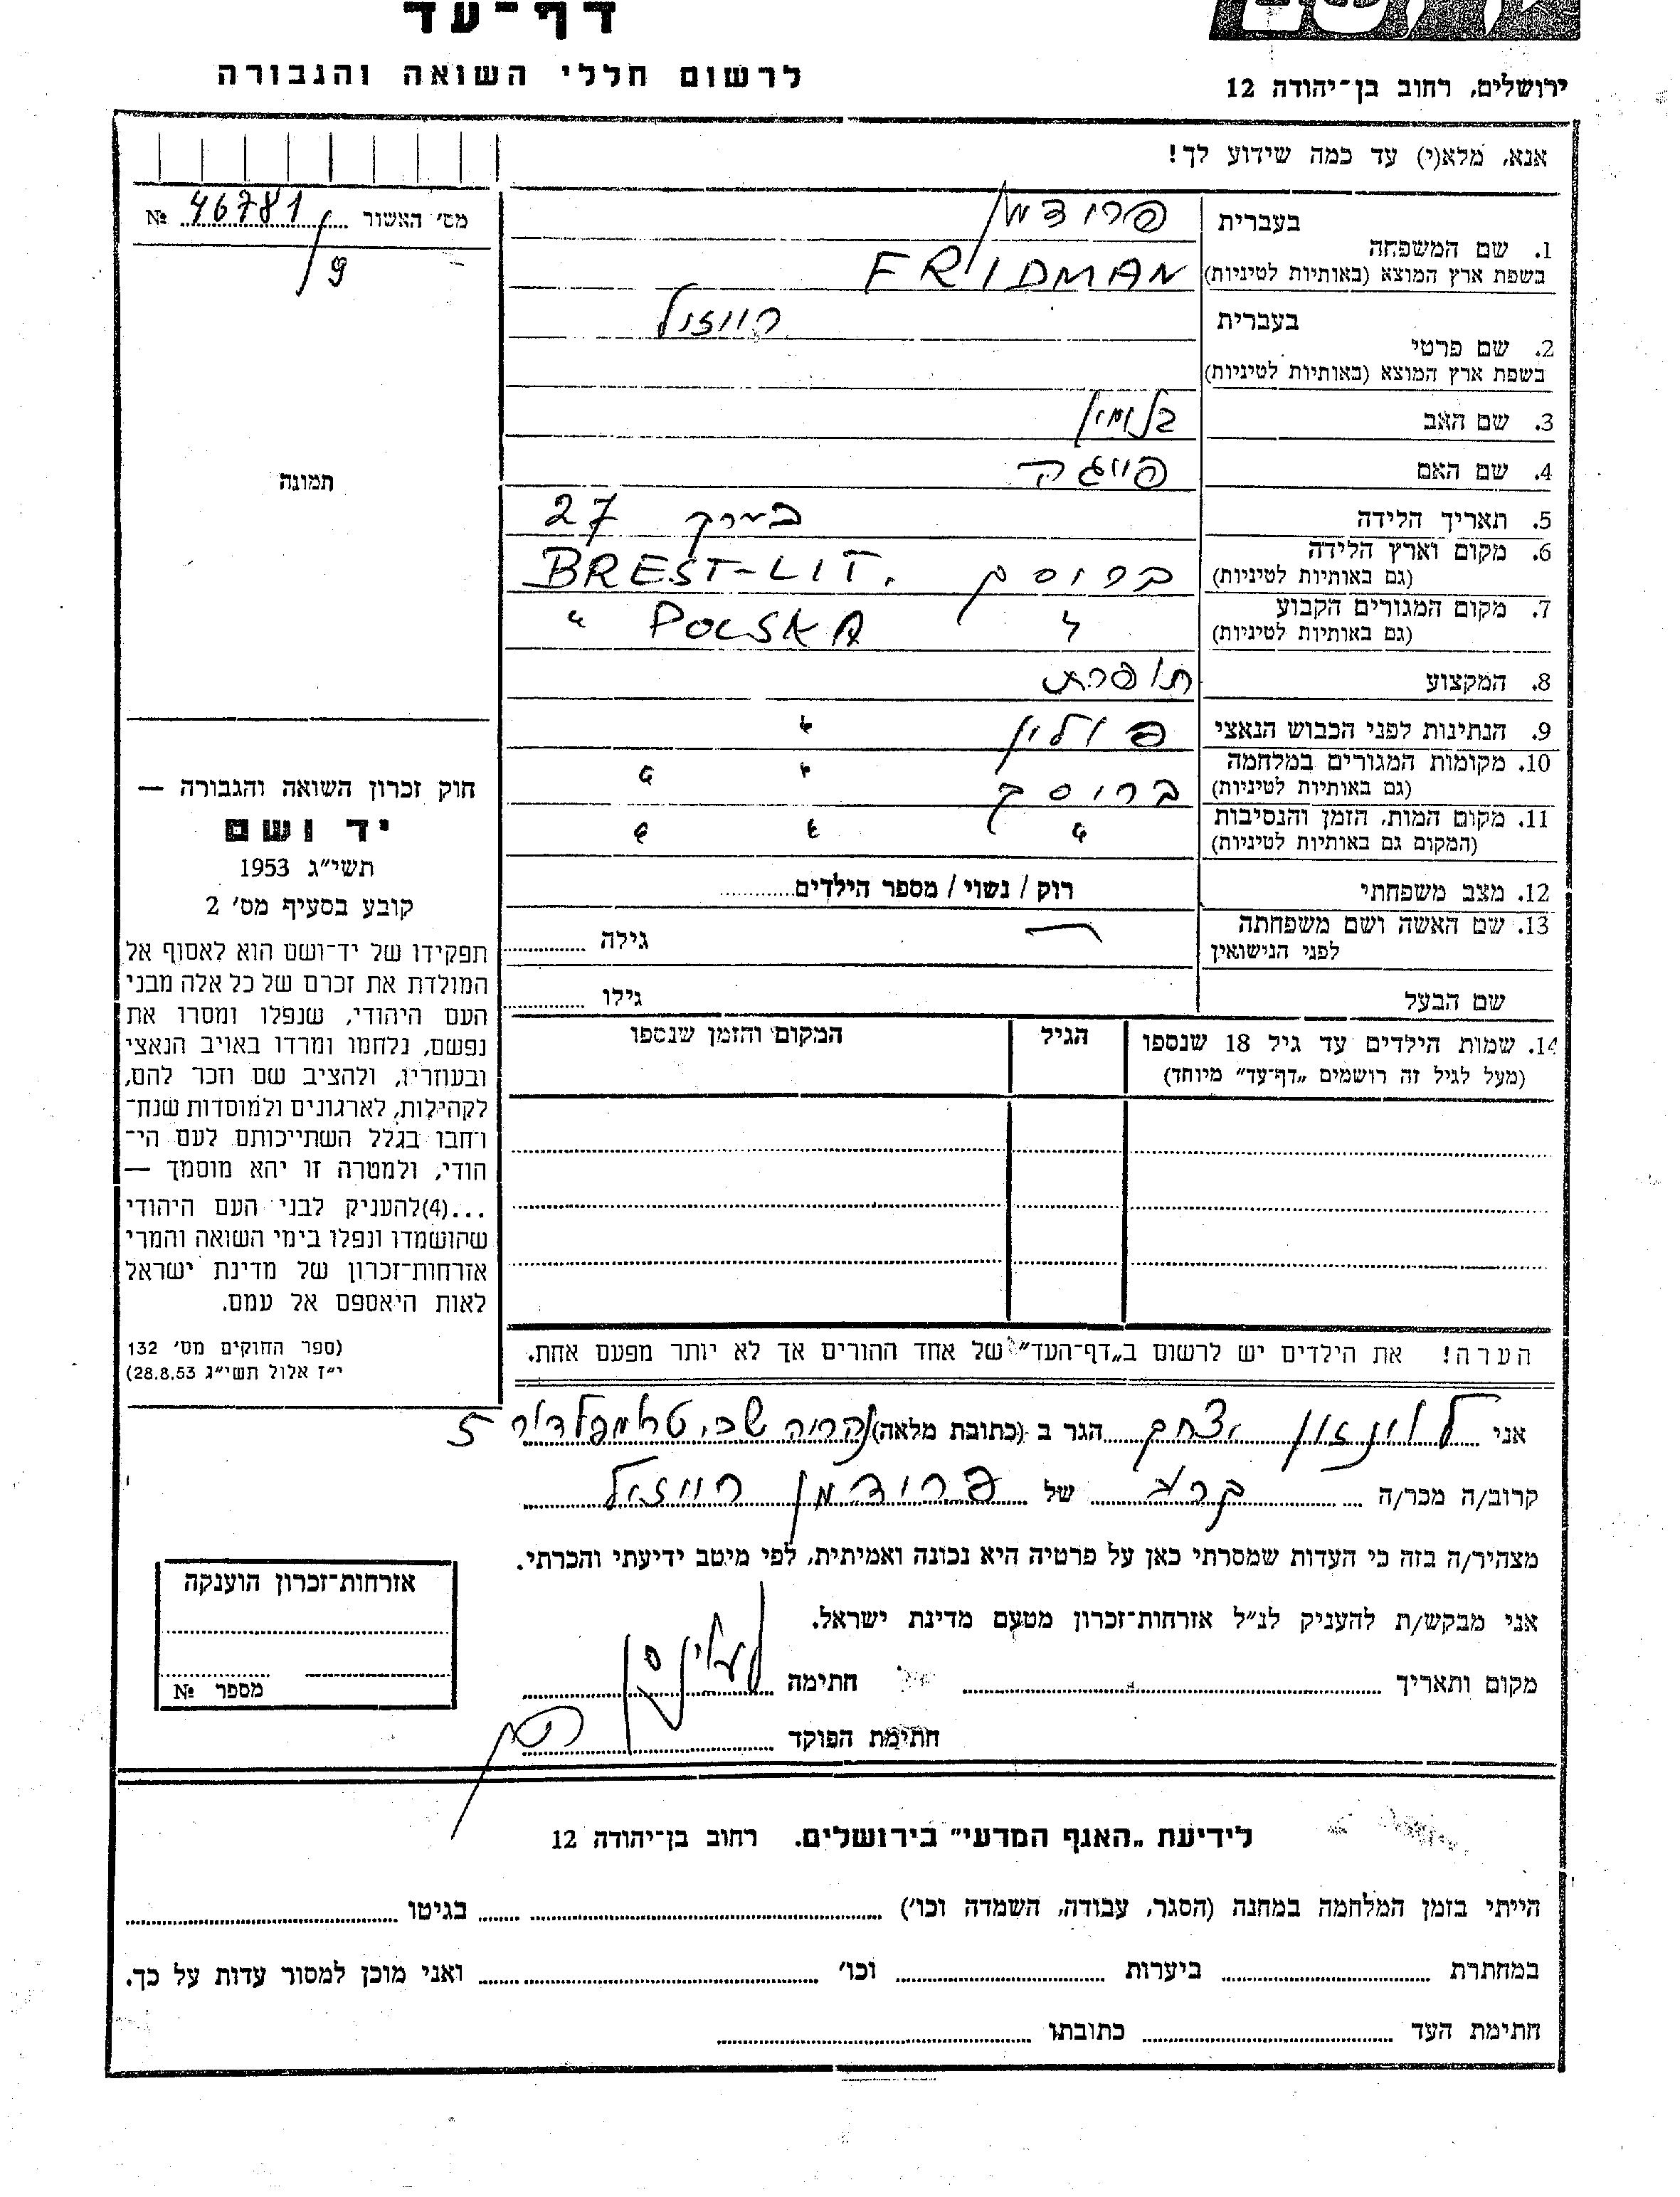 דף־עד
לרשום חללי השואה והגבורה
ירושלים, רחוב בן־יהודה 12
אנא, מלא(י) עד כמה שידוע לך!
מס׳ האשור 46781 №
9
1. שם המשפחה
בעברית פרידמן
בשפת ארץ המוצא (באותיות לטיניות) FRIDMAN
2. שם פרטי
בעברית רייזל
בשפת ארץ המוצא (באותיות לטיניות)
3. שם האב
4. שם האם פייגה
5. תאריך הלידה 27
6. מקום וארץ הלידה
(גם באותיות לטיניות) BREST-LIT.
7. מקום המגורים הקבוע
(גם באותיות לטיניות) " POLSKA "
8. המקצוע תופרת
9. הנתינות לפני הכבוש הנאצי פולין "
10. מקומות המגורים במלחמה
(גם באותיות לטיניות) " "
11. מקום המות, הזמן והנסיבות
(המקום גם באותיות לטיניות) " " "
12. מצב משפחתי רוק / נשוי / מספר הילדים
13. שם האשה ושם משפחתה
לפני הנישואין — גילה
שם הבעל גילו
14. שמות הילדים עד גיל 18 שנספו
(מעל לגיל זה רושמים „דף־עד״ מיוחד)
הגיל
המקום והזמן שנספו
הערה! את הילדים יש לרשום ב„דף־העד״ של אחד ההורים אך לא יותר מפעם אחת.
תמונה
חוק זכרון השואה והגבורה —
יד ושם
תשי״ג 1953
קובע בסעיף מס׳ 2
תפקידו של יד־ושם הוא לאסוף אל
המולדת את זכרם של כל אלה מבני
העם היהודי, שנפלו ומסרו את
נפשם, נלחמו ומרדו באויב הנאצי
ובעוזריו, ולהציב שם וזכר להם,
לקהילות, לארגונים ולמוסדות שנח־
רבו בגלל השתייכותם לעם הי־
הודי, ולמטרה זו יהא מוסמך —
...(4)להעניק לבני העם היהודי
שהושמדו ונפלו בימי השואה והמרי
אזרחות־זכרון של מדינת ישראל
לאות היאספם אל עמם.
(ספר החוקים מס׳ 132
י״ז אלול תשי״ג 28.8.53)
אני יצחק הגר ב (כתובת מלאה) טרומפלדור 5
קרוב/ה מכר/ה של פרידמן רייזל
מצהיר/ה בזה כי העדות שמסרתי כאן על פרטיה היא נכונה ואמיתית, לפי מיטב ידיעתי והכרתי.
אני מבקש/ת להעניק לנ״ל אזרחות־זכרון מטעם מדינת ישראל.
מקום ותאריך חתימה
חתימת הפוקד
אזרחות־זכרון הוענקה
מספר №
לידיעת „האגף המדעי״ בירושלים. רחוב בן־יהודה 12
הייתי בזמן המלחמה במחנה (הסגר, עבודה, השמדה וכו׳) בגיטו
במחתרת ביערות וכו׳ ואני מוכן למסור עדות על כך.
חתימת העד כתובתו